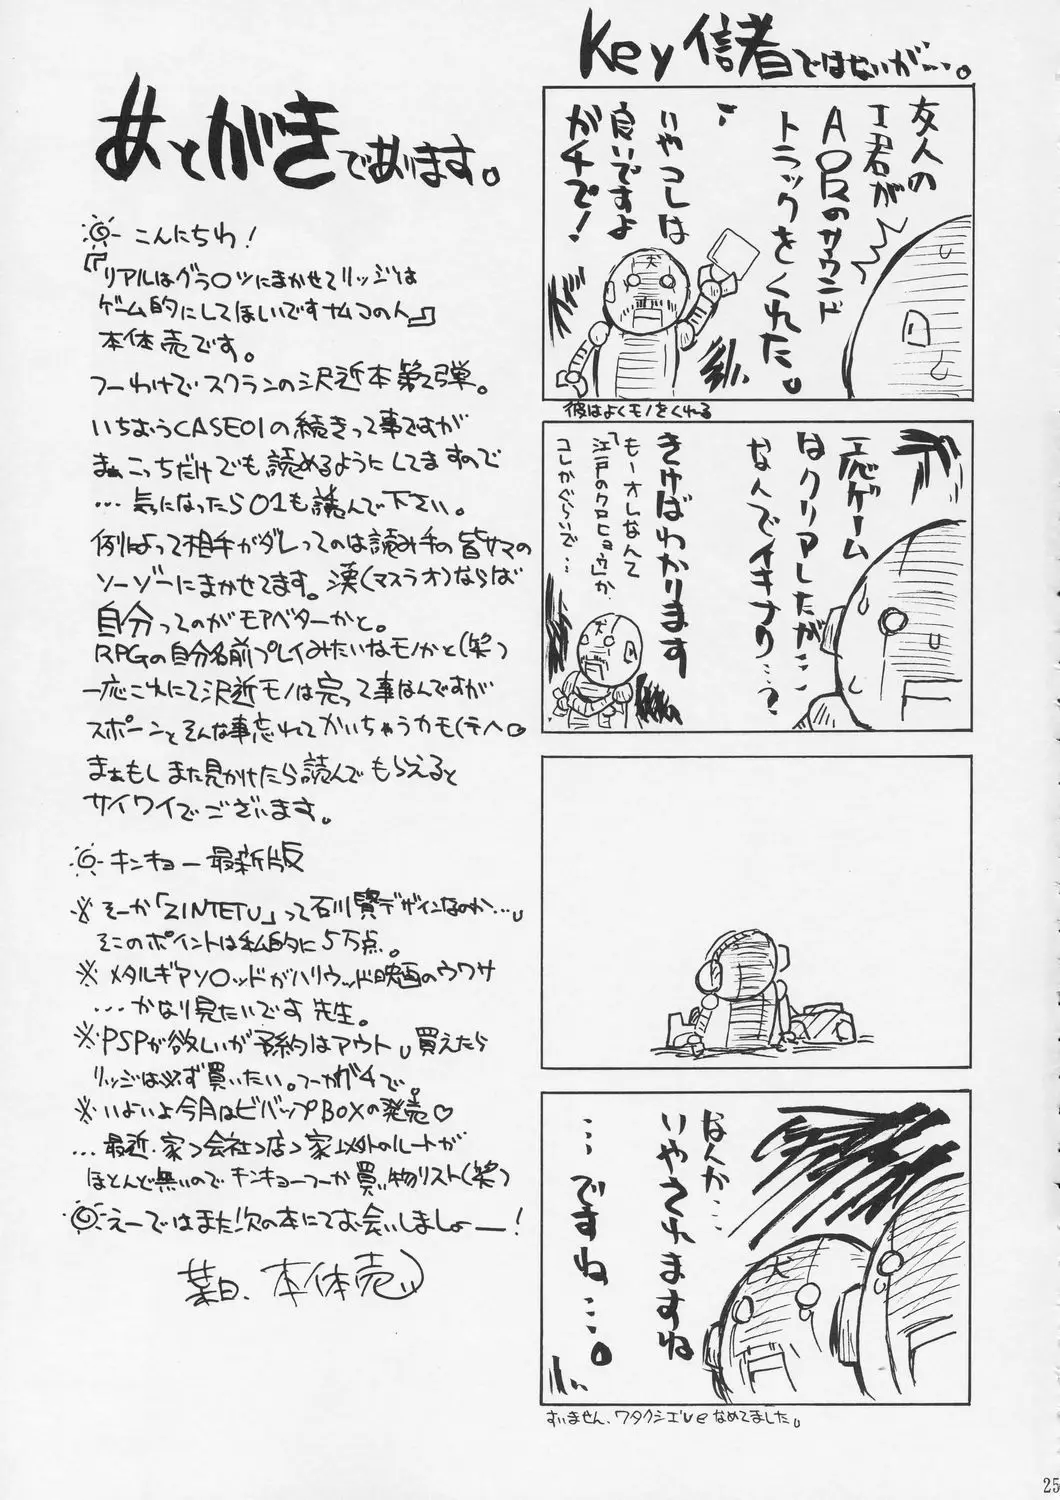 あとがきであります。
こんにちわ!
『リアルはグラ○ツにまかせてリッジは
ゲーム的にしてほしいですナムコの人』
本体売です。
つーわけでスクランの沢近本第2弾。
いちおうCASE01の続きって事ですが
まぁこっちだけでも読めるようにしてますので
…気になったら01も読んで下さい。
例によって相手がダレってのは読み手の皆サマの
ソーゾーにまかせてます。漢(マスラオ)ならば
自分ってのがモアベターかと。
RPGの自分名前プレイみたいなモノかと(笑)
一応これにて沢近モノは完って事なんですが
スポーンとそんな事忘れてかいちゃうカモ(テヘ。
まぁもしまた見かけたら読んでもらえると
サイワイでございます。
キンキョー最新版
※そーか「ZINTETU」って石川賢デザインなのか…。
そこのポイントは私的に5万点。
※メタルギアソ○ッドがハリウッド映画のウワサ
…かなり見たいです先生。
※PSPが欲しいが予約はアウト。買えたら
リッジは必ず買いたい。つーかガチで。
※いよいよ今月はビバップBOXの発売♡
…最近、家→会社→店→家以外のルートが
ほとんど無いのでキンキョーつーか買い物リスト(笑)
えーではまた次の本にてお会いしましょー!
葉月、本体売
Key信者ではないが…。
友人の
I君が
AIRのサウンド
トラックをくれた。
いやコレは
良いですよ
ガチで!
彼はよくモノをくれる
ゲーム
はクリアしたが…
なんでイキナリ…?
きけばわかります
もーオレなんて
「江戸のクロヒョウ」か、
コレかぐらいで…
なんか…
いやされますね
…ですね…。
すいません、ワタクシ
なめてました。
25